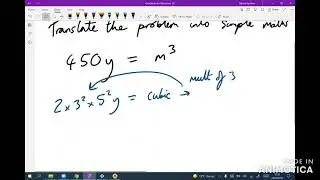 Translate the problem into simple maths
450y = m³
mult of 3
2 × 3² × 5² y = cubic →
MADE IN
ANIMOTICA